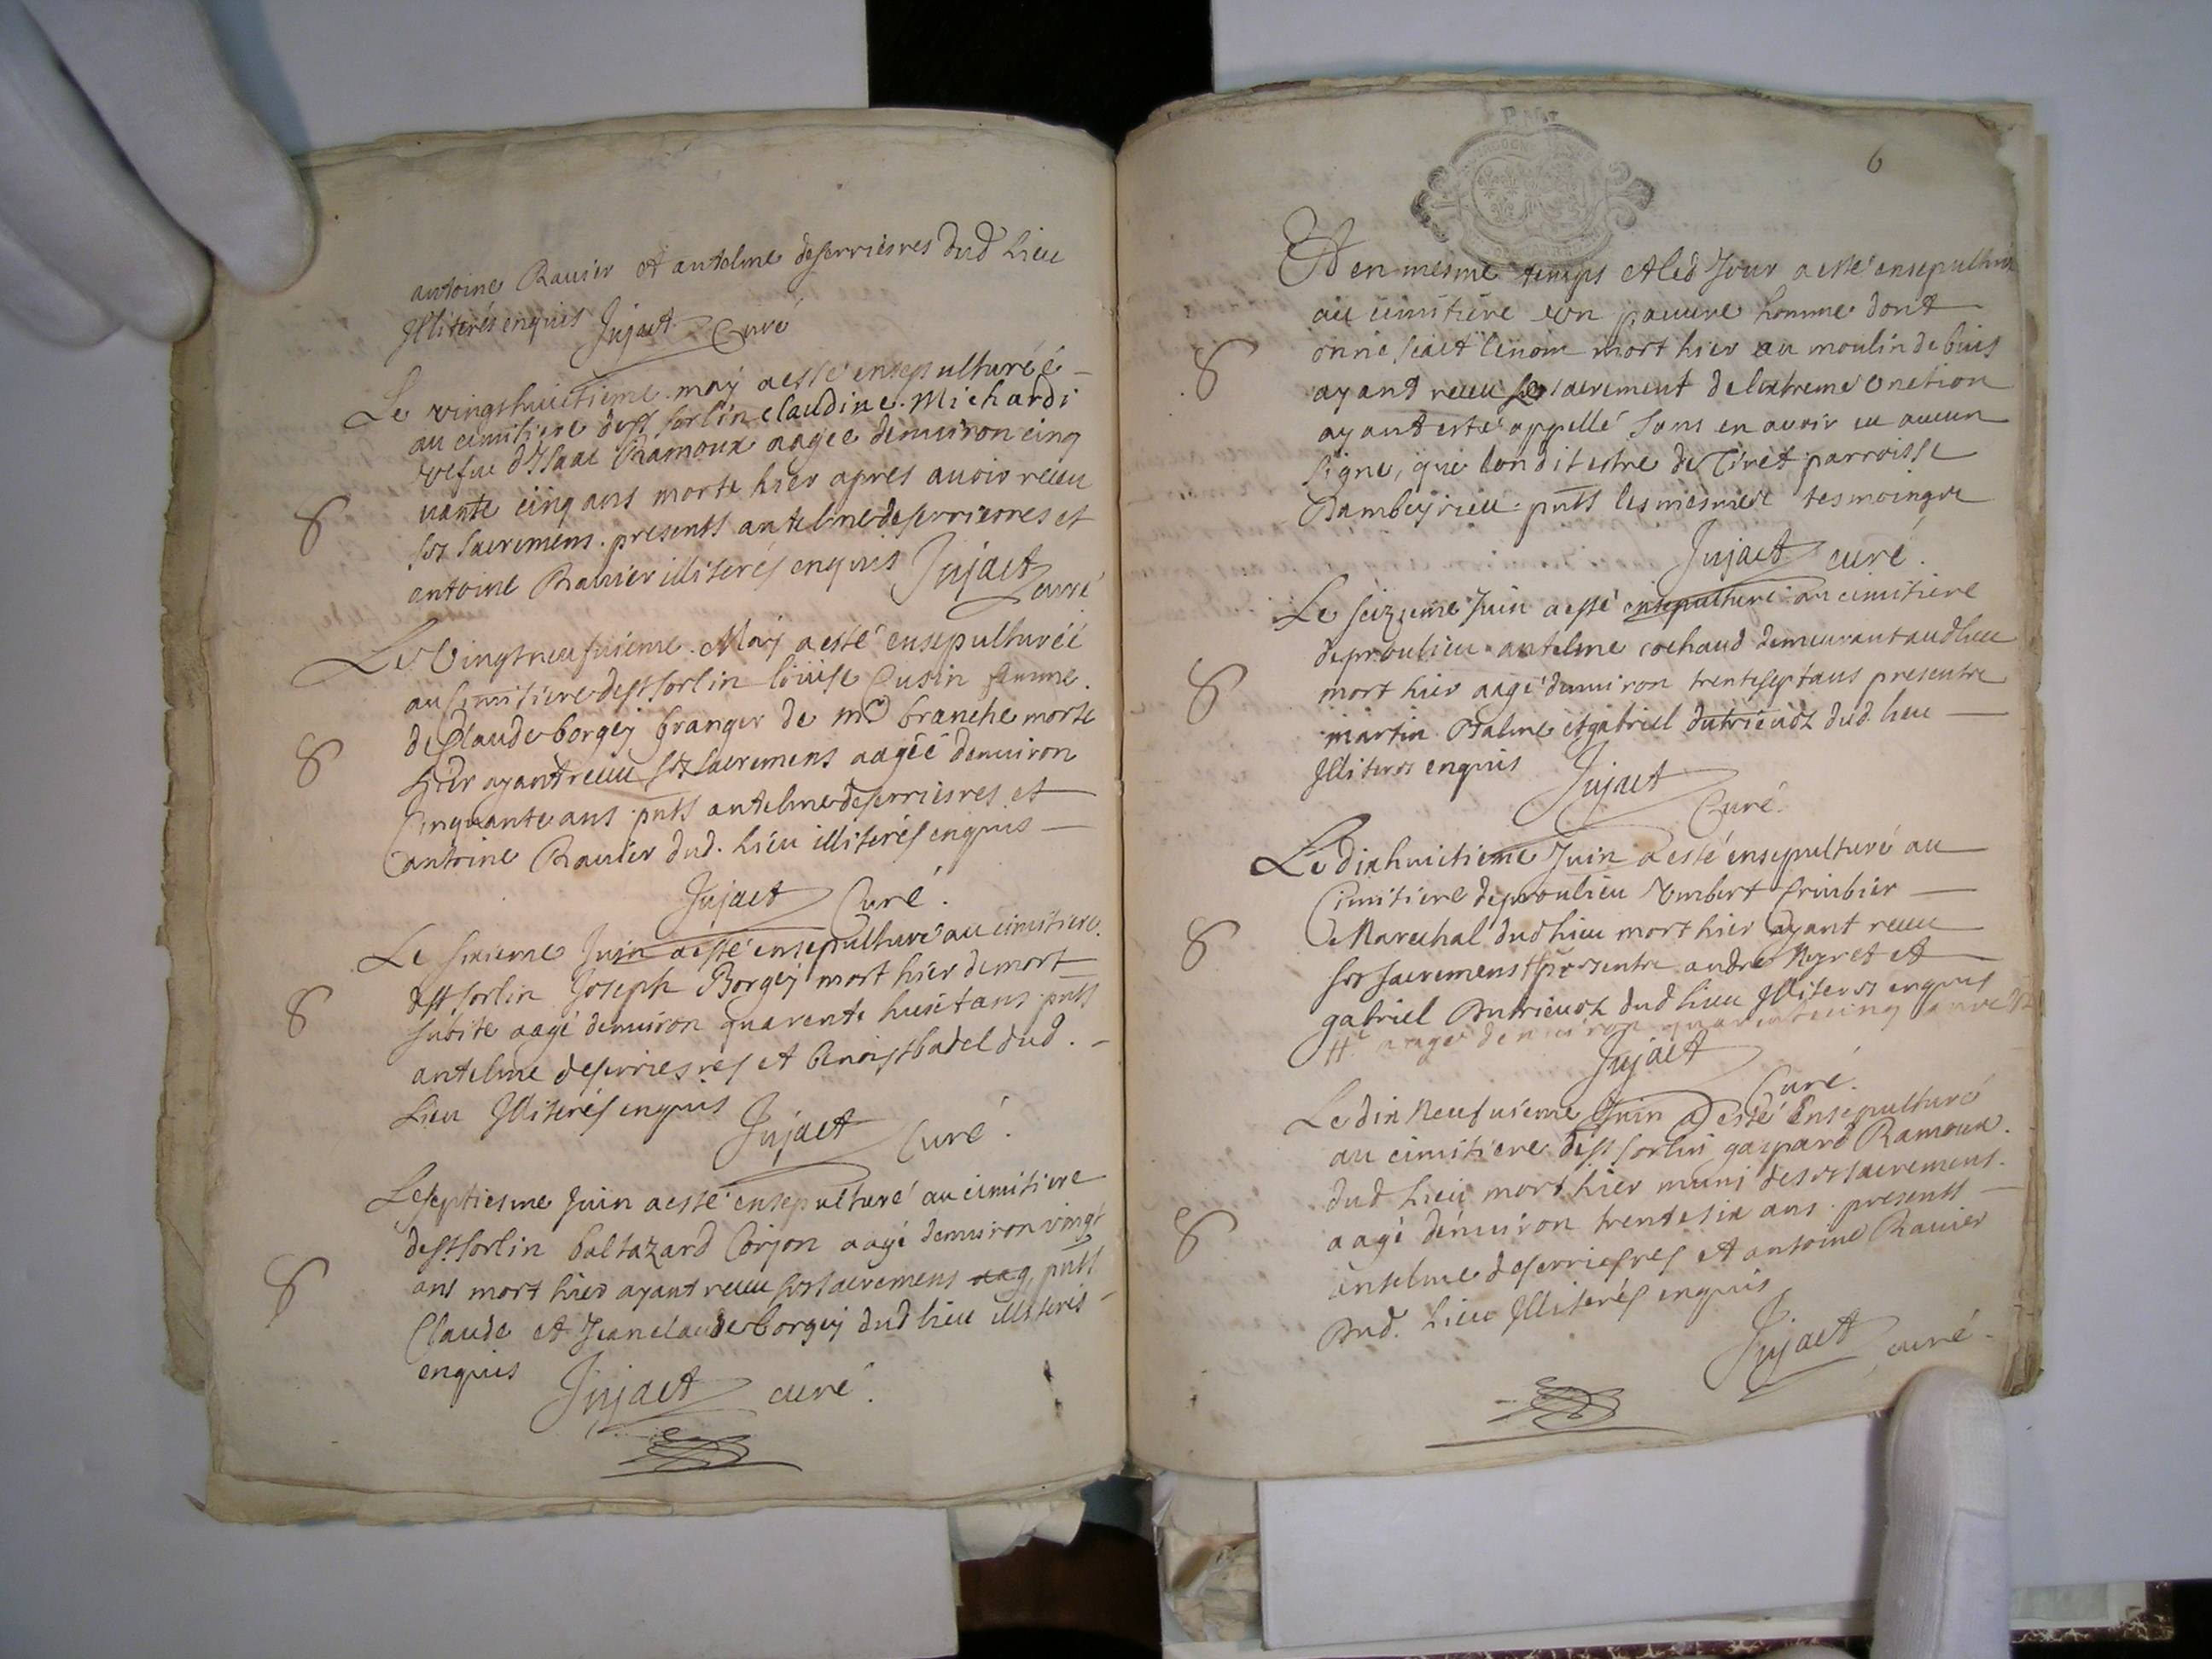 antoine Rauier et antelme deserriesres dud Lieu
Illiterés enquis Jujact Curé
Le vingthuictieme may a esté ensepulturéé
au cimitiere de st sorlin claudine Michardi
vefue d'Isaac Ramoux aagee denuiron cinq
uante cinq ans morte hier apres auoir receu
ses sacremens. presents antelme deserrierres et
antoine Rauier illiterés enquis Jujact
curé
S
Le Vingtneufuieme May a esté ensepulturéé
au Cimitiere de st sorlin loüise Cusin femme
de Claude borgey granger de mr branche morte
hier ayant receu ses sacremens aagéé denuiron
Cinquante ans pnts antelme deserriesres et
antoine Rauier dud. Lieu illiterés enquis
Jujact Curé.
S
Le sixieme Juin a esté ensepulturé au cimitiere
de st sorlin Joseph Borgey mort hier de mort
subite aagé denuiron quarente huict ans pnts
antelme deserriesres et Benoist badel dud.
Lieu Illiterés enquis
Jujact Curé.
S
Le septiesme Juin a esté ensepulturé au cimitiere
de st sorlin baltazard Corjon aagé denuiron vingt
ans mort hier ayant receu ses sacremens aag pnts
Claude et Jean claude borgey dud lieu illiterés
enquis Jujact curé.
S
6
Et en mesme temps et led Jour a esté ensepulturé
au cimitiere un pauure homme dont
on ne scait le nom mort hier au moulin de buis
ayant receu le sacrement de lextreme onction
ayant esté appellé sans en auoir eu aucun
signe, que lon dit estre de Ciret parroisse
Dambeyrieu pnts les mesmes tesmoings
Jujact curé.
S
Le seizieme Juin a esté ensepulturé au cimitiere
de proulieu antelme cochaud demeurant aud lieu
mort hier aagé denuiron trente sept ans presents
martin Dalme et gabriel dutrieuoz dud. lieu
Illiteres enquis Jujact
Curé.
S
Le dix huictieme Juin a esté ensepulturé au
Cimitiere de proulieu Umbert
Marechal dud lieu mort hier ayant receu
ses sacremens presents andré Neyret et
gabriel Dutrieuoz dud lieu Illiteres enquis
aagé denuiron quarente cinq ans
Jujact
Curé.
S
Le dix Neufuieme Juin a esté Ensepulturé
au cimitiere de st sorlin gaspard Ramoux
dud lieu mort hier muni de ses sacremens
aagé denuiron trente six ans. presents
antelme deserriesres et antoine Rauier
Dud. Lieu Illiterés enquis
Jujact curé
S